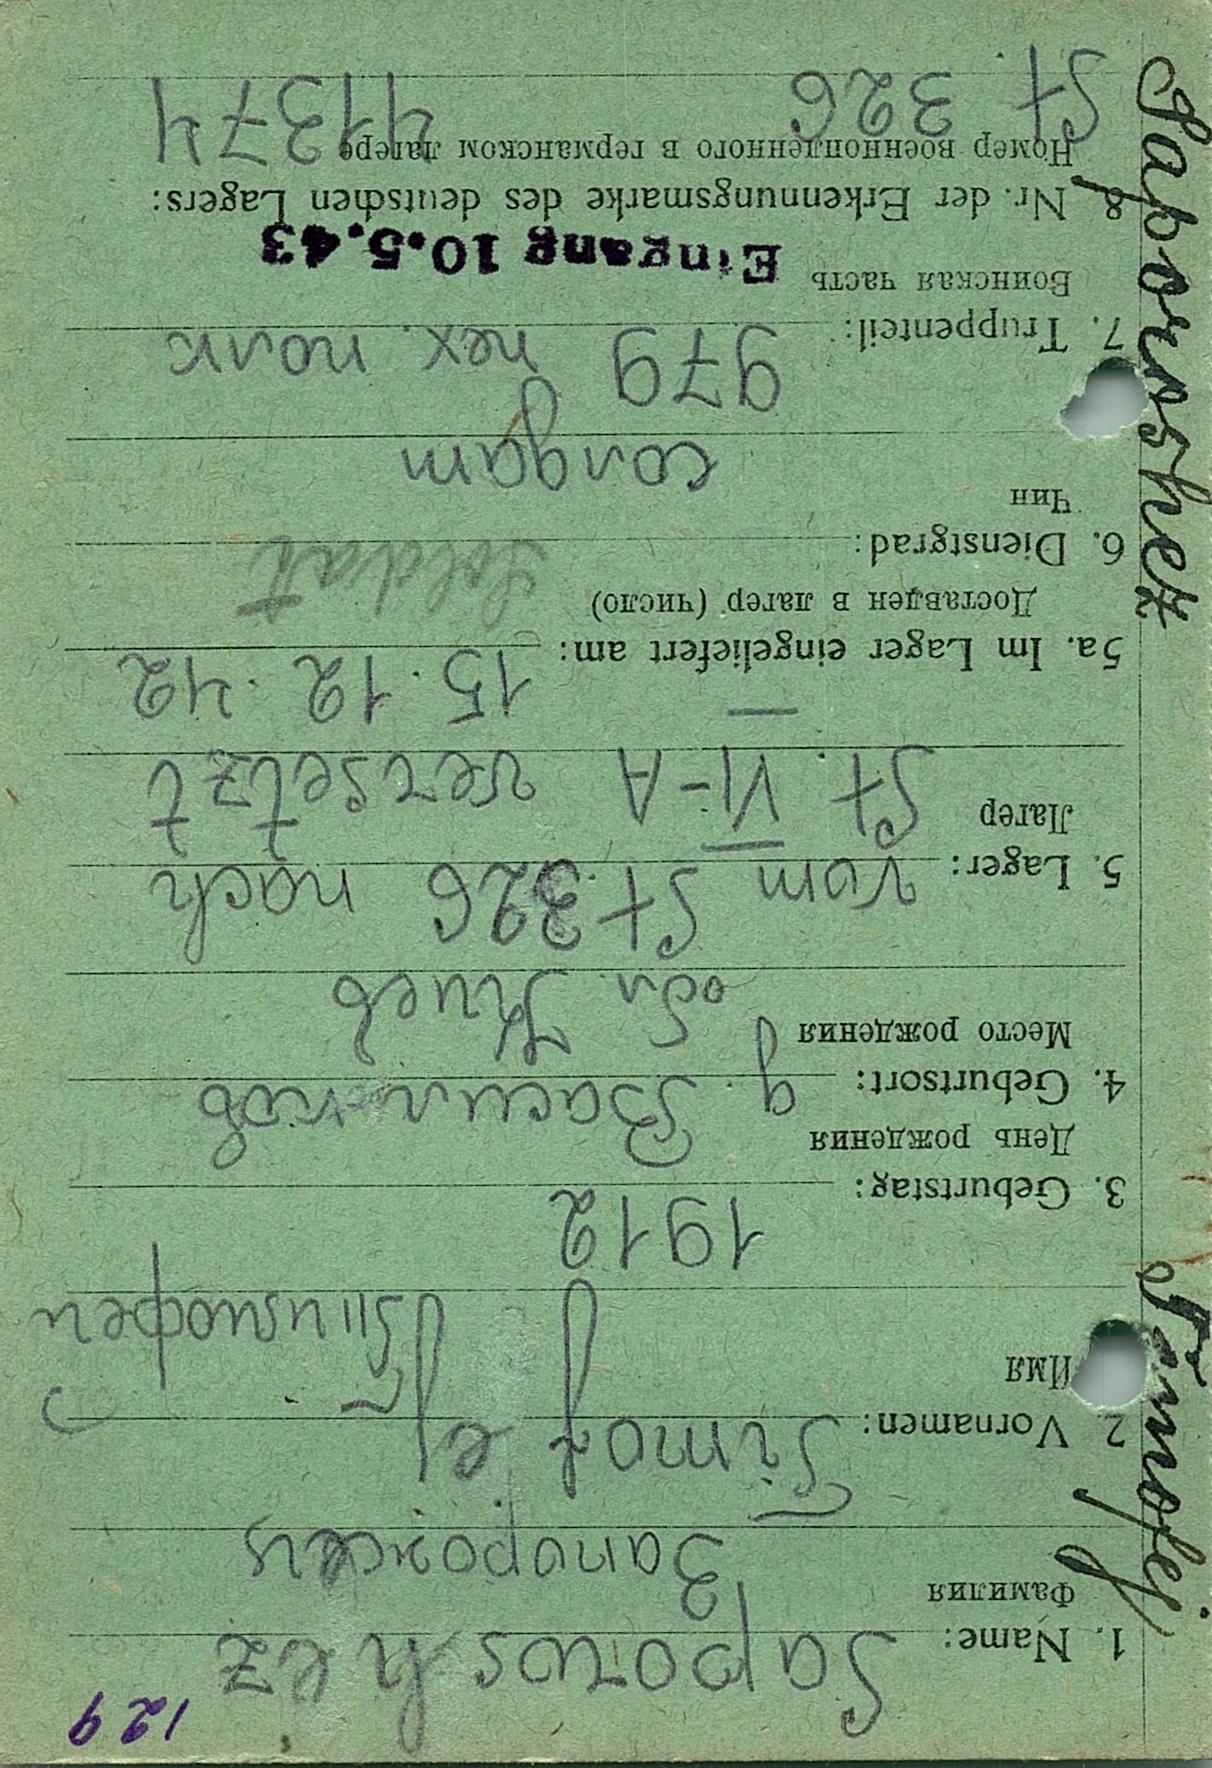 129
1. Name: Saporoshez
Фамилия
Запорожец
2. Vornamen: Timofej
Имя
Тимофей
3. Geburtstag: 1912
День рождения
4. Geburtsort: г. Васильков
Место рождения
обл. Киев
5. Lager: vom St 326 nach
Лагер
St. VI-A versetzt
5a. Im Lager eingeliefert am: 15.12.42
Доставлен в лагер (число)
Soldat
6. Dienstgrad:
Чин
солдат
7. Truppenteil: 979 пех. полк
Воинская часть
Eingang 10.5.43
8. Nr. der Erkennungsmarke des deutschen Lagers:
Номер военнопленного в германском лагере
St. 326 41374
Saporoshez Timofej